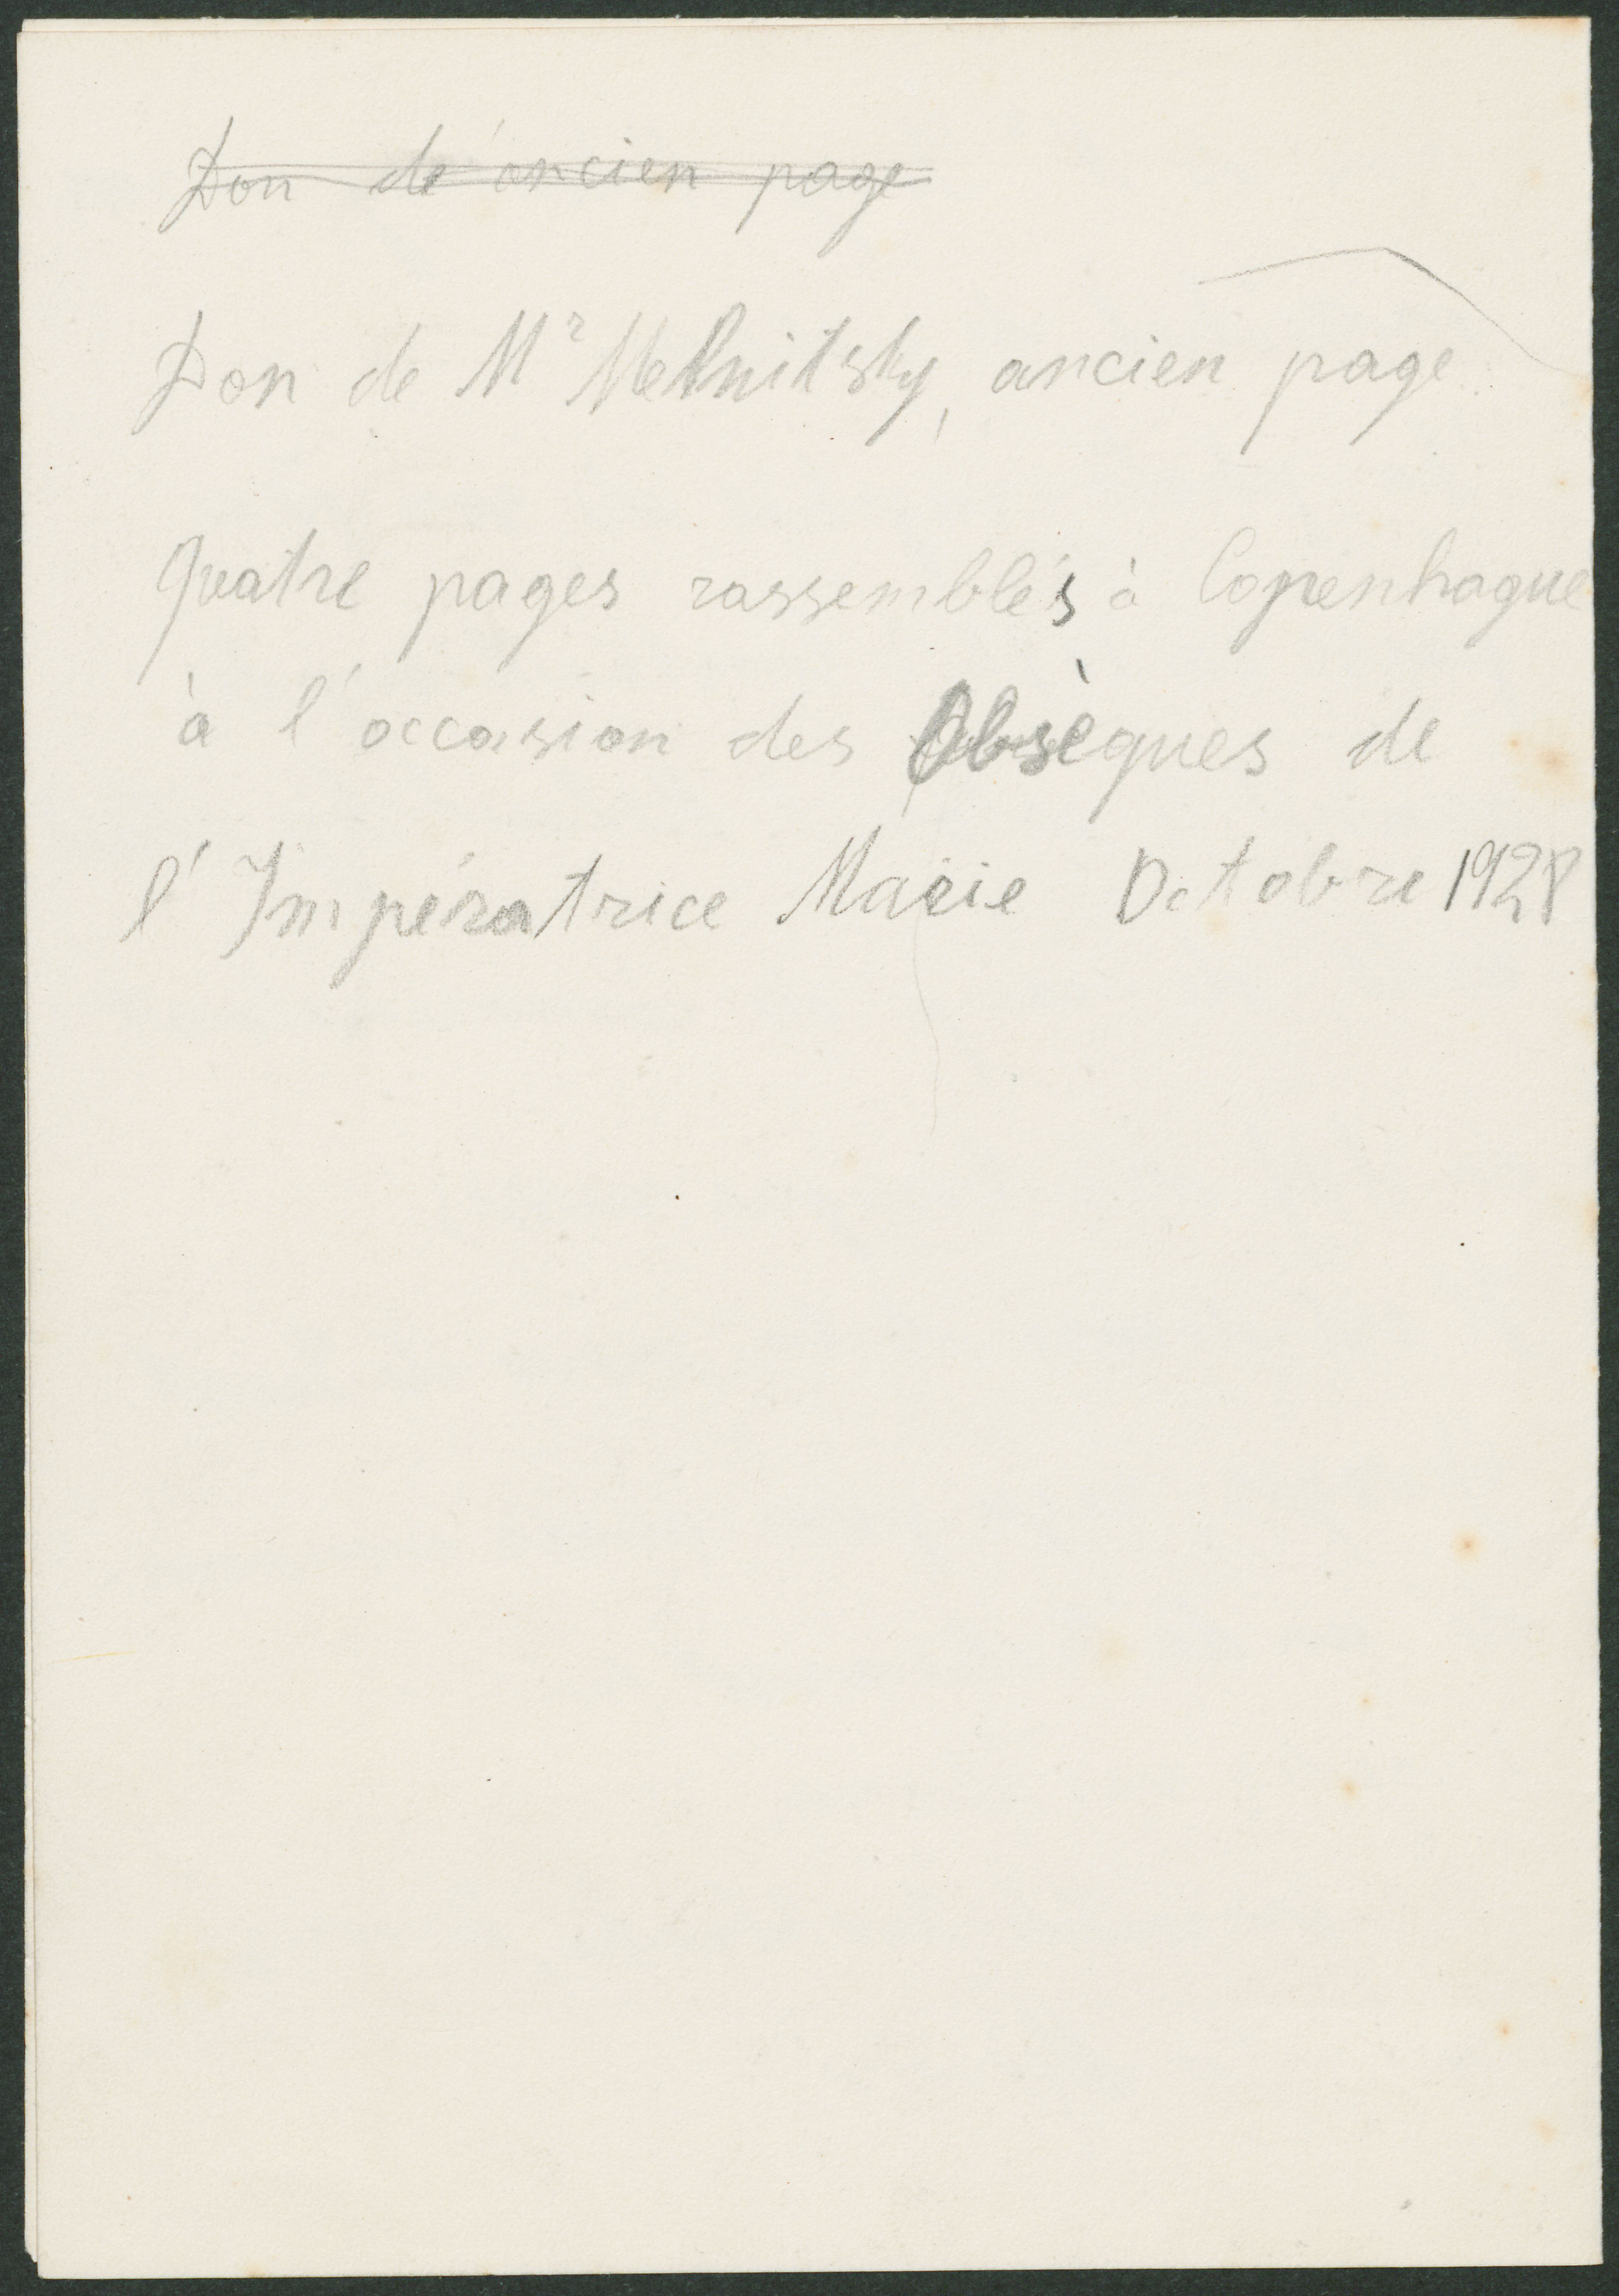 Don de ancien page
Don de Mr Melnitsky, ancien page
Quatre pages rassemblés à Copenhague
à l'occasion des Obsèques de
l'Impératrice Marie Octobre 1928